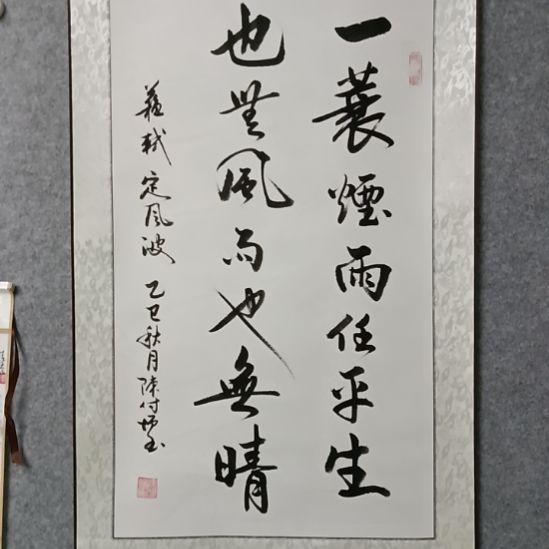 一蓑煙雨任平生
也無風雨也無晴
蘇軾 定風波 乙巳秋月陳付